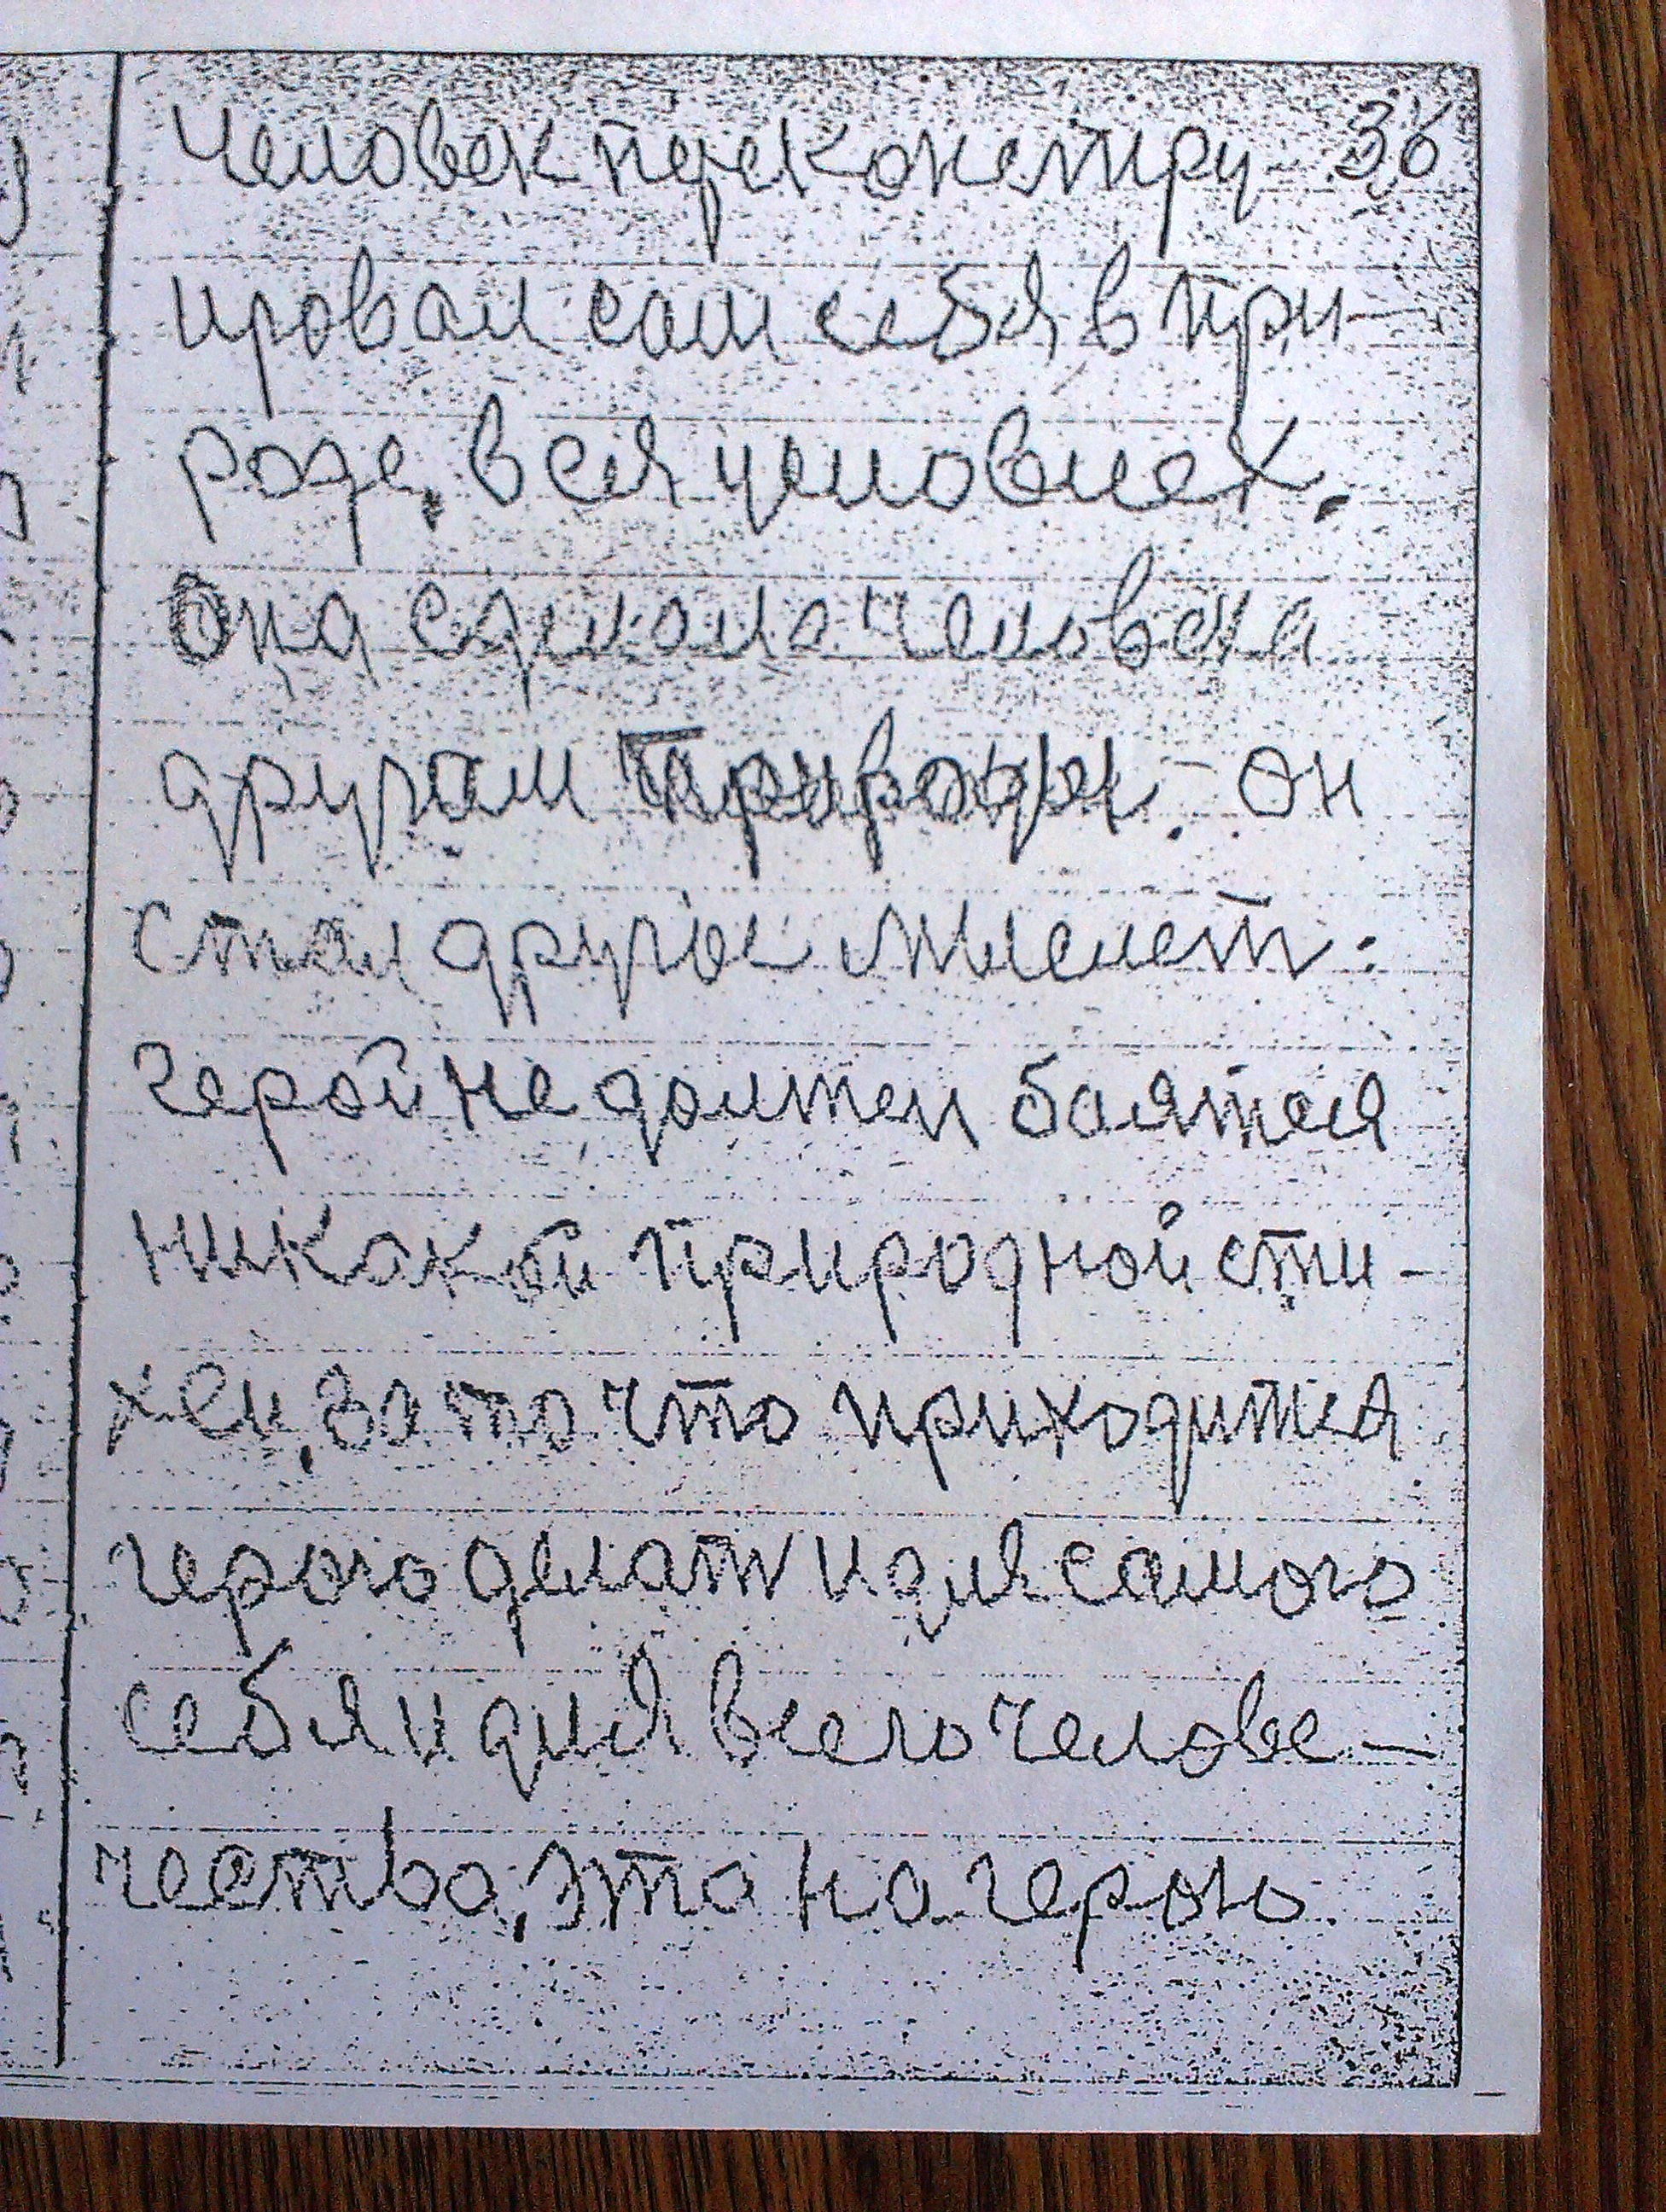 Человек переконстру- 36
ировал сам себя в при-
роде, в ея условиех.
Она сделала человека
другам Природы. он
стал другое мыслет.
Герой не должен боятся
никакой природной сти-
хеи, за то что приходится
герою делат и для самого
себя и для всего челове-
чества, это на герою